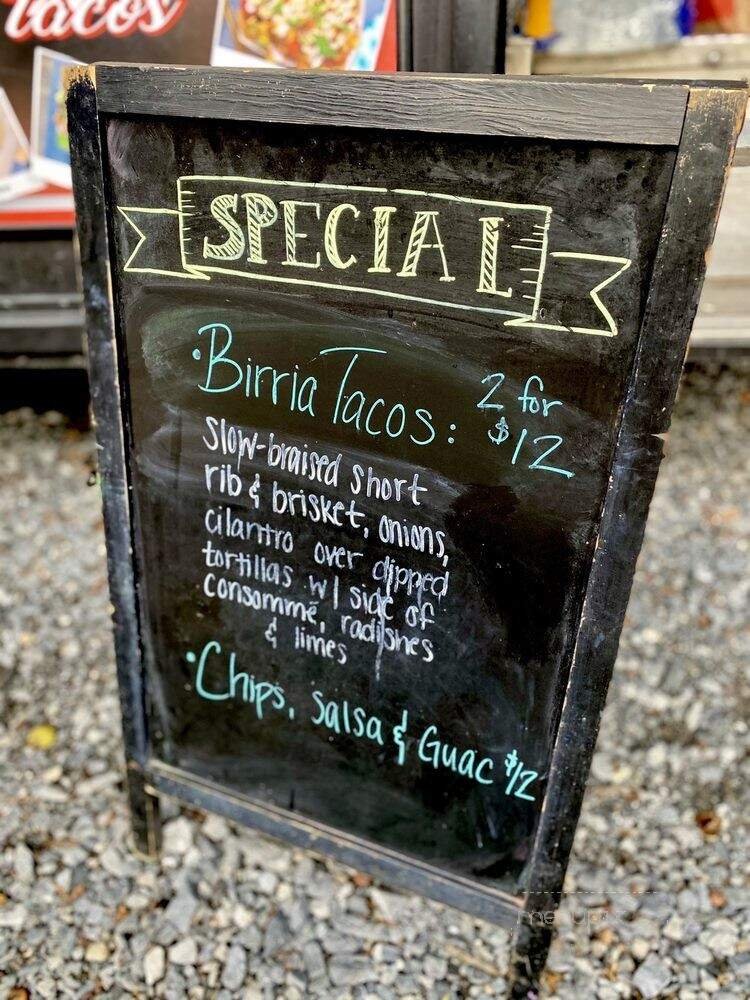 tacos
SPECIAL
• Birria Tacos: 2 for
$12
slow-braised short
rib & brisket, onions,
cilantro over dipped
tortillas w/ side of
consommé, radishes
& limes
• Chips, Salsa & Guac $12